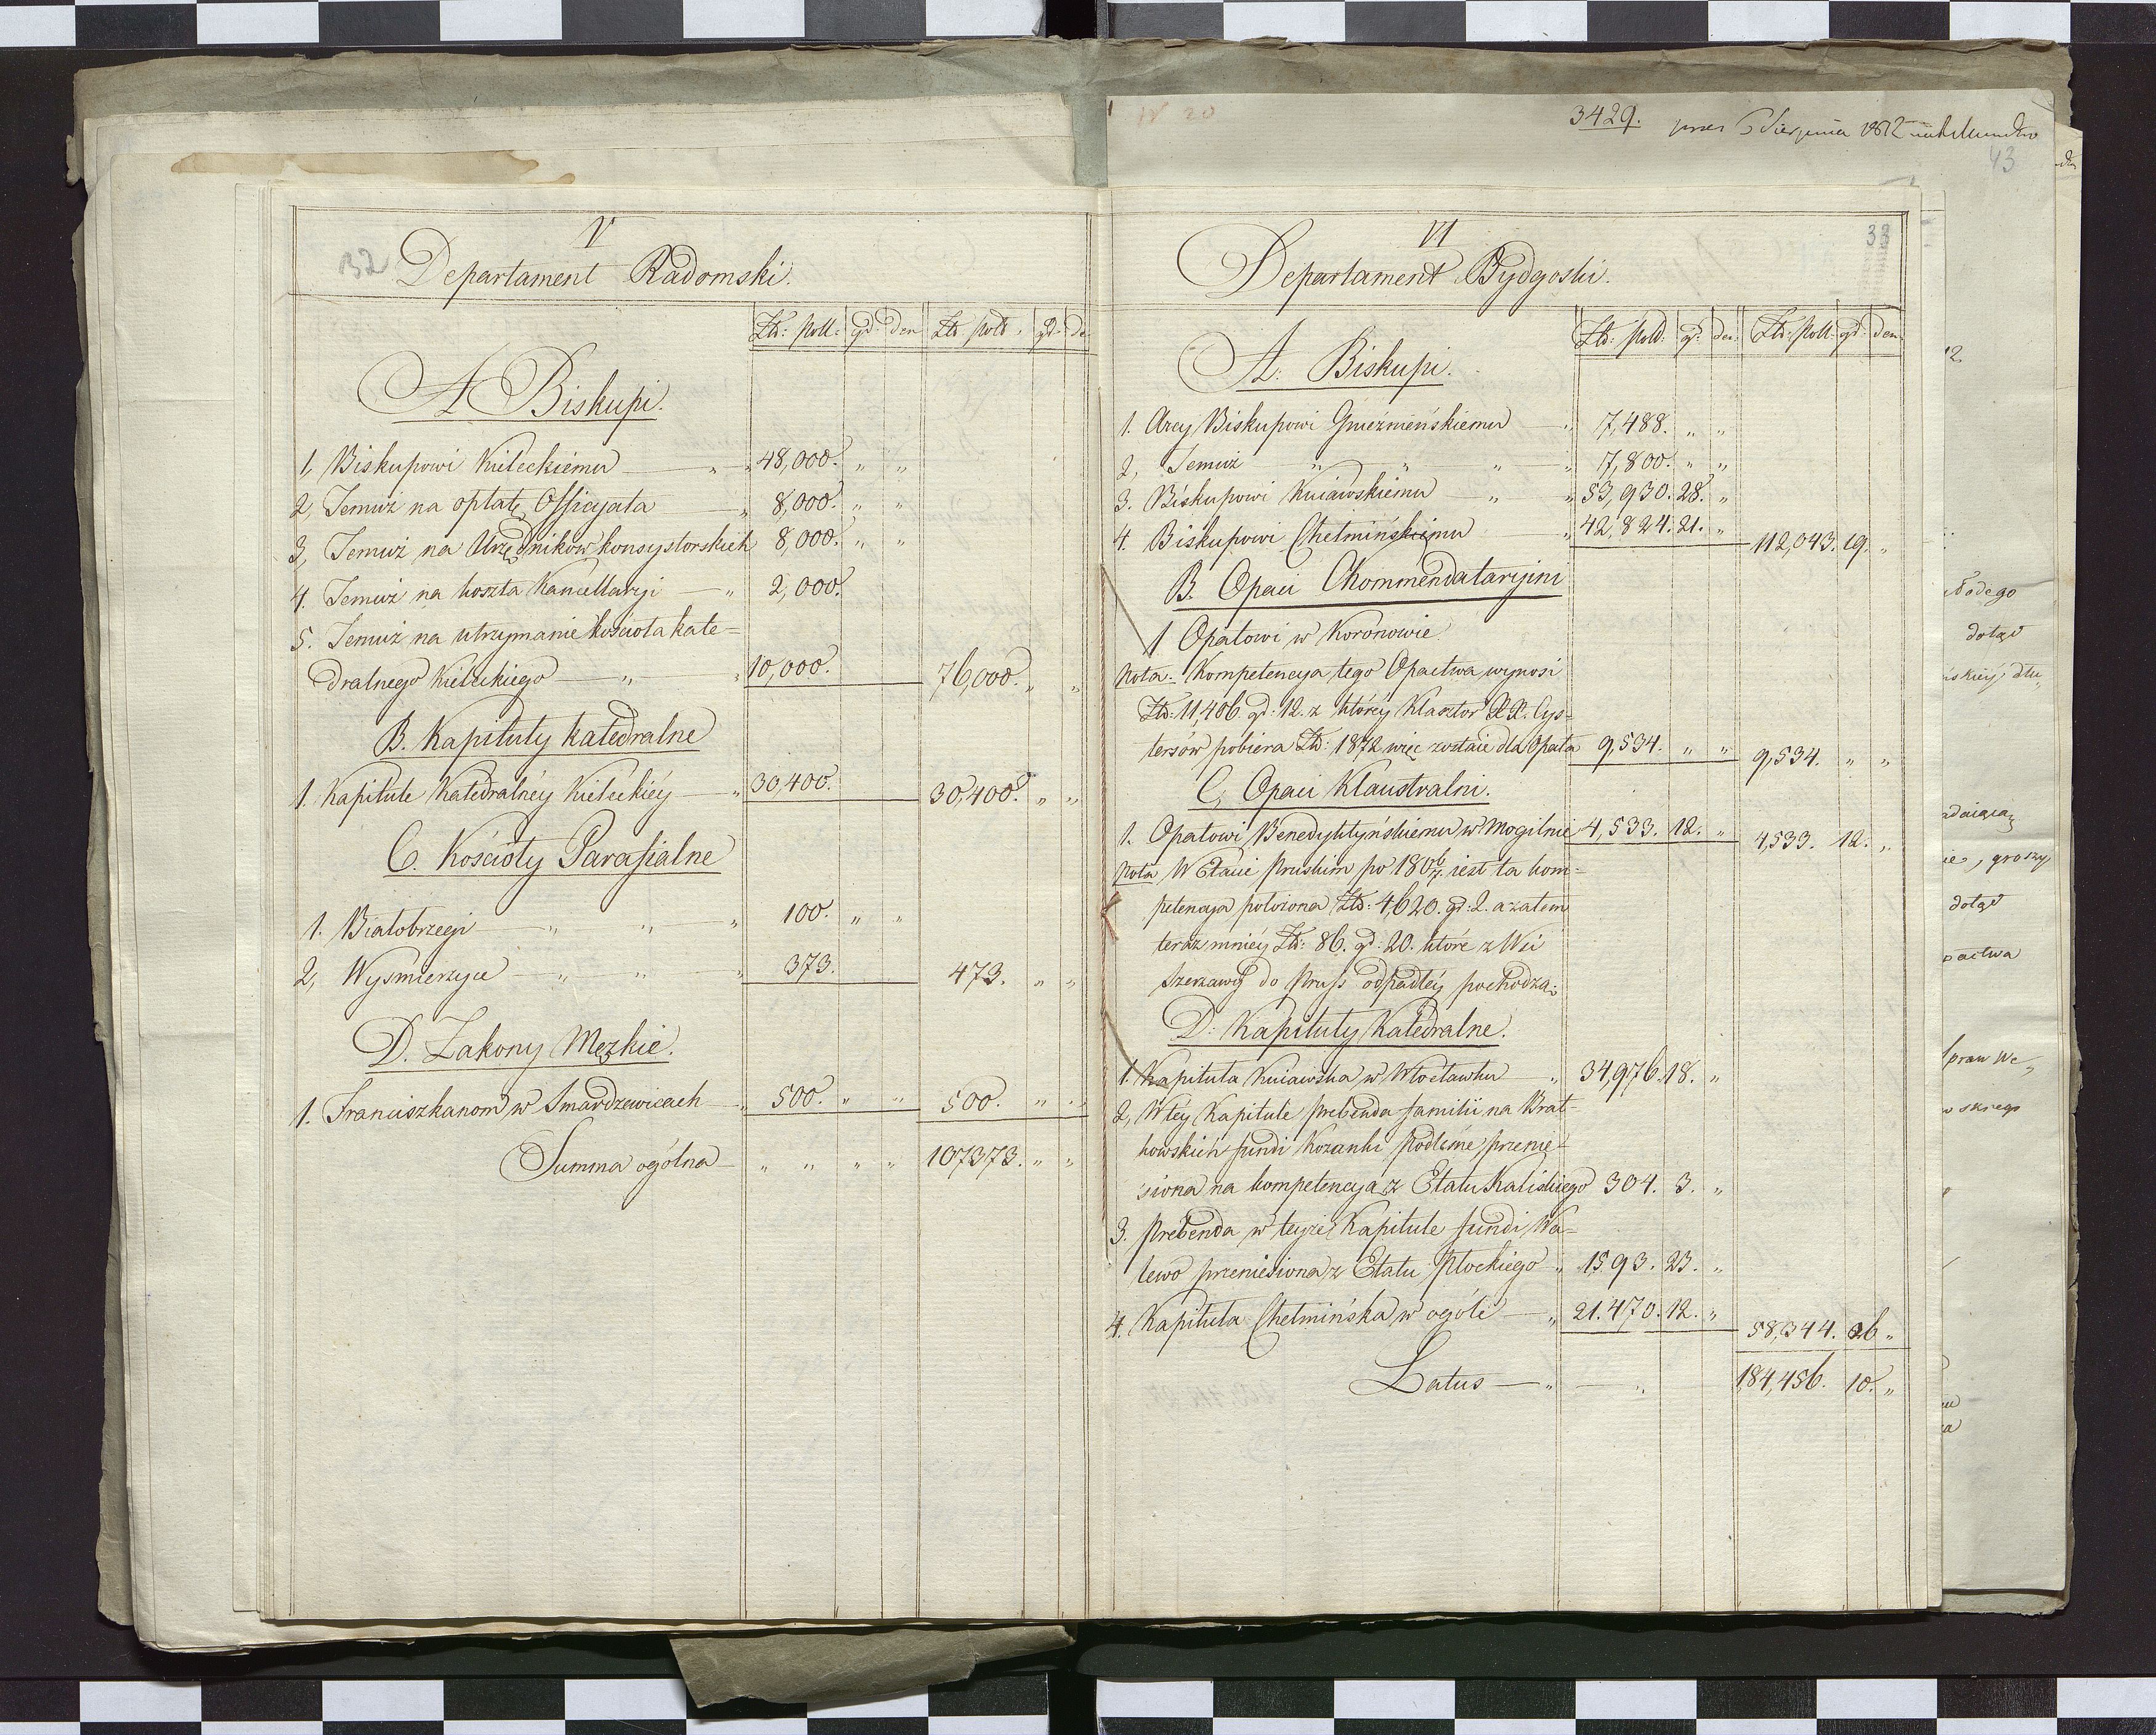 32
V
Departament Radomski.
Złt: poll: gr: den Złt poll. gr: de
A Biskupi.
1, Biskupowi Kieleckiemu — „ 48,000. „ „
2, Temuż na opłatę Officyała — „ 8,000. „ „
3, Temuż na Urzędników konsystorskich 8,000. „ „
4. Temuż na koszta Kancellaryi — „ 2,000.
5. Temuż na utrzymanie kościoła kate=
dralnego Kieleckiego — „ „ 10,000. 76,000. „ „
B. Kapituły katedralne
1. Kapitule Katedralnéy Kieleckiéy — „ 30,400. 30,400. „ „
C. Kościoły Parafialne
1. Białobrzegi — „ „ — „ 100. „ „
2, Wyśmierzyce — „ „ „ 373. 473. „ „
D. Zakony Męzkie.
1. Franciszkanom w Smardzewicach — „ 500. „ „ 500. „ „
Summa ogólna — „ „ „ „ 107373. „ „
N 20
3429.
Sierpnia 1812
43
VI
33
Departament Bydgoski.
Złt: poll: gr: den: Złt: poll: gr: den
A. Biskupi.
1. Arcy Biskupowi Gnieźnieńskiemu — „ 7,488. „ „
2, Temuż „ „ „ — „ 7,800. „ „
3. Biskupowi Kuiawskiemu — „ „ 53,930. 28. „
4. Biskupowi Chełmińskiemu „ 42,824. 21. „ 112,043. 19. „
B. Opaci Kommendataryini
1 Opatowi w Koronowie
Nota. Kompetencya tego Opactwa wynosi
Złt: 11,406. gr: 12. z któréy Klasztor XX. Cys=
tersów pobiera Złt: 1872 więc zostaie dla Opata 9,534. „ „ 9,534. „ „
C, Opaci Klaustralni.
1. Opatowi Benedyktyńskiemu w Mogilnie 4,533. 12. „ 4,533. 12. „
Nota W Etacie Pruskim po 1806/7. iest ta kom=
petencya położona Złt: 4,620. gr: 2. a zatem
teraz mniéy Złt: 86. gr: 20. które z Wsi
Szerzawy do Pruss odpadłéy pochodzą.
D: Kapituły Katedralne.
1. Kapituła Kuiawska w Włocławku „ 34,976. 18. „
2, W tey Kapitule prebenda familii na Krat=
kowskich fundi Kozanki Podleśne przenie=
siona na kompetencyą z Etatu Kaliskiego 304. 3. „
3. Prebenda w teyże Kapitule fundi Wa=
lewo przeniesiona z Etatu Płockiego „ 1593. 23. „
4. Kapituła Chełmińska w ogóle — „ 21.470. 12. „ 58,344. 26 „
Latus — „ — „ 184,456. 10. „
dotąd
dotąd